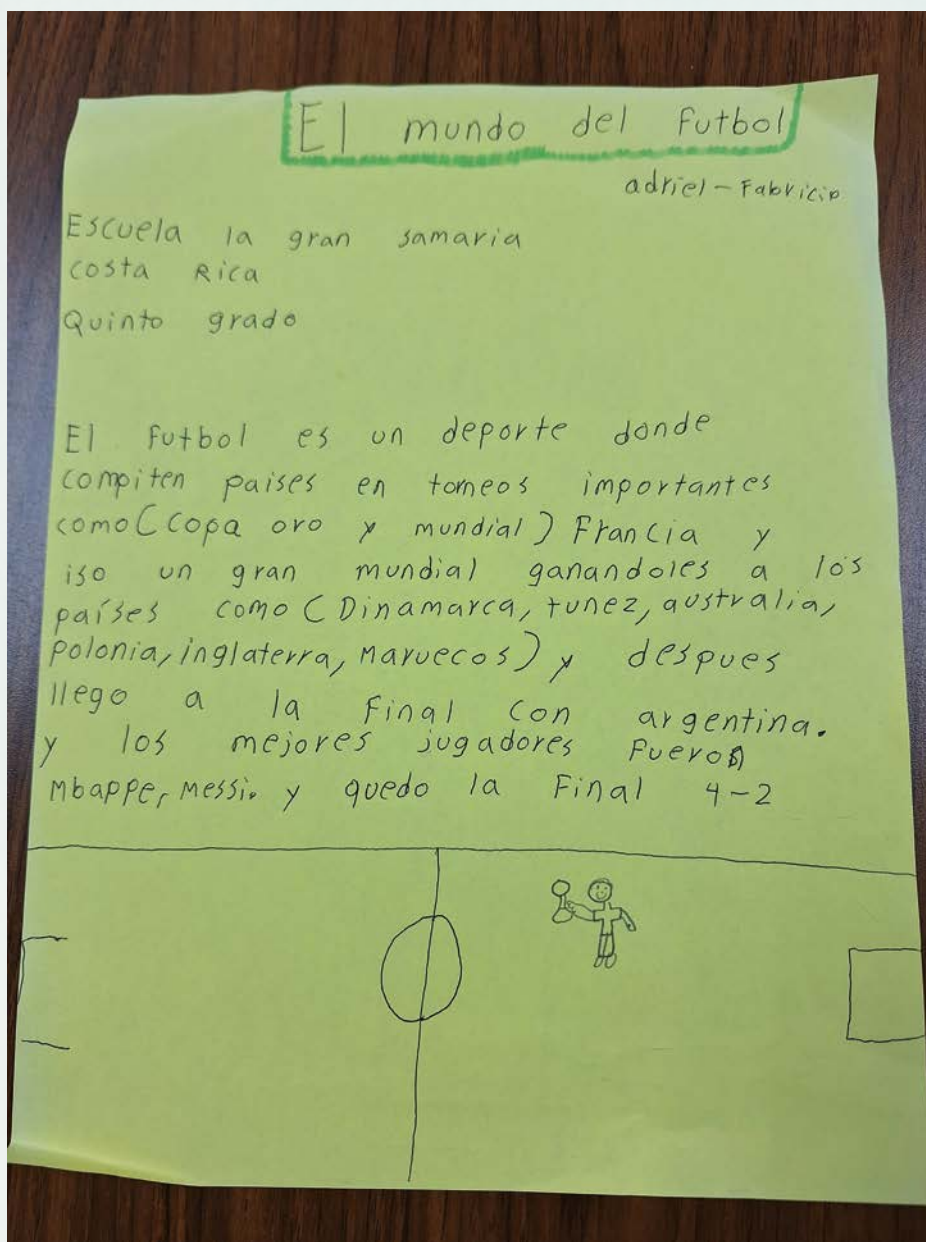 El mundo del futbol
adriel-Fabricio
Escuela la gran samaria
costa Rica
Quinto grado
El futbol es un deporte donde
compiten paises en torneos importantes
como (Copa oro y mundial) Francia y
iso un gran mundial ganandoles a los
países como (Dinamarca, tunez, australia,
polonia, inglaterra, Maruecos) y despues
llego a la final con argentina.
y los mejores jugadores fueron
Mbappe, Messi. y quedo la Final 4-2